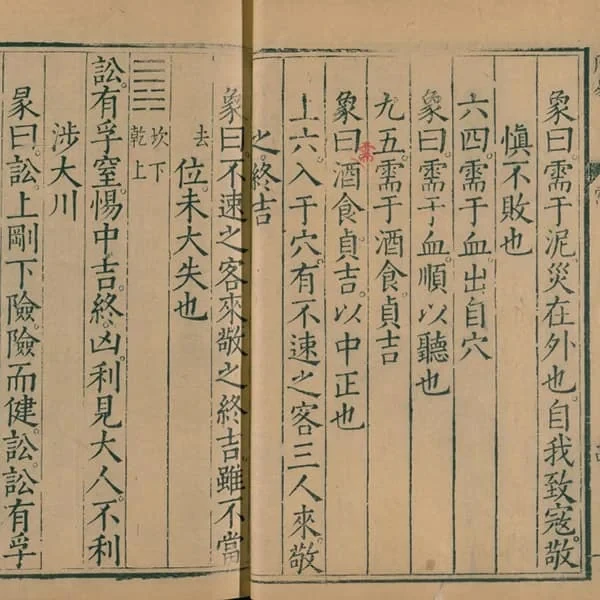 象曰需于泥災在外也自我致寇敬
慎不敗也
六四需于血出自穴
象曰需于血順以聽也
九五需于酒食貞吉
象曰酒食貞吉以中正也
上六入于穴有不速之客三人來敬
之終吉
象曰不速之客來敬之終吉雖不當
去
位未大失也
坎下
乾上
訟有孚窒惕中吉終凶利見大人不利
涉大川
彖曰訟上剛下險險而健訟訟有孚